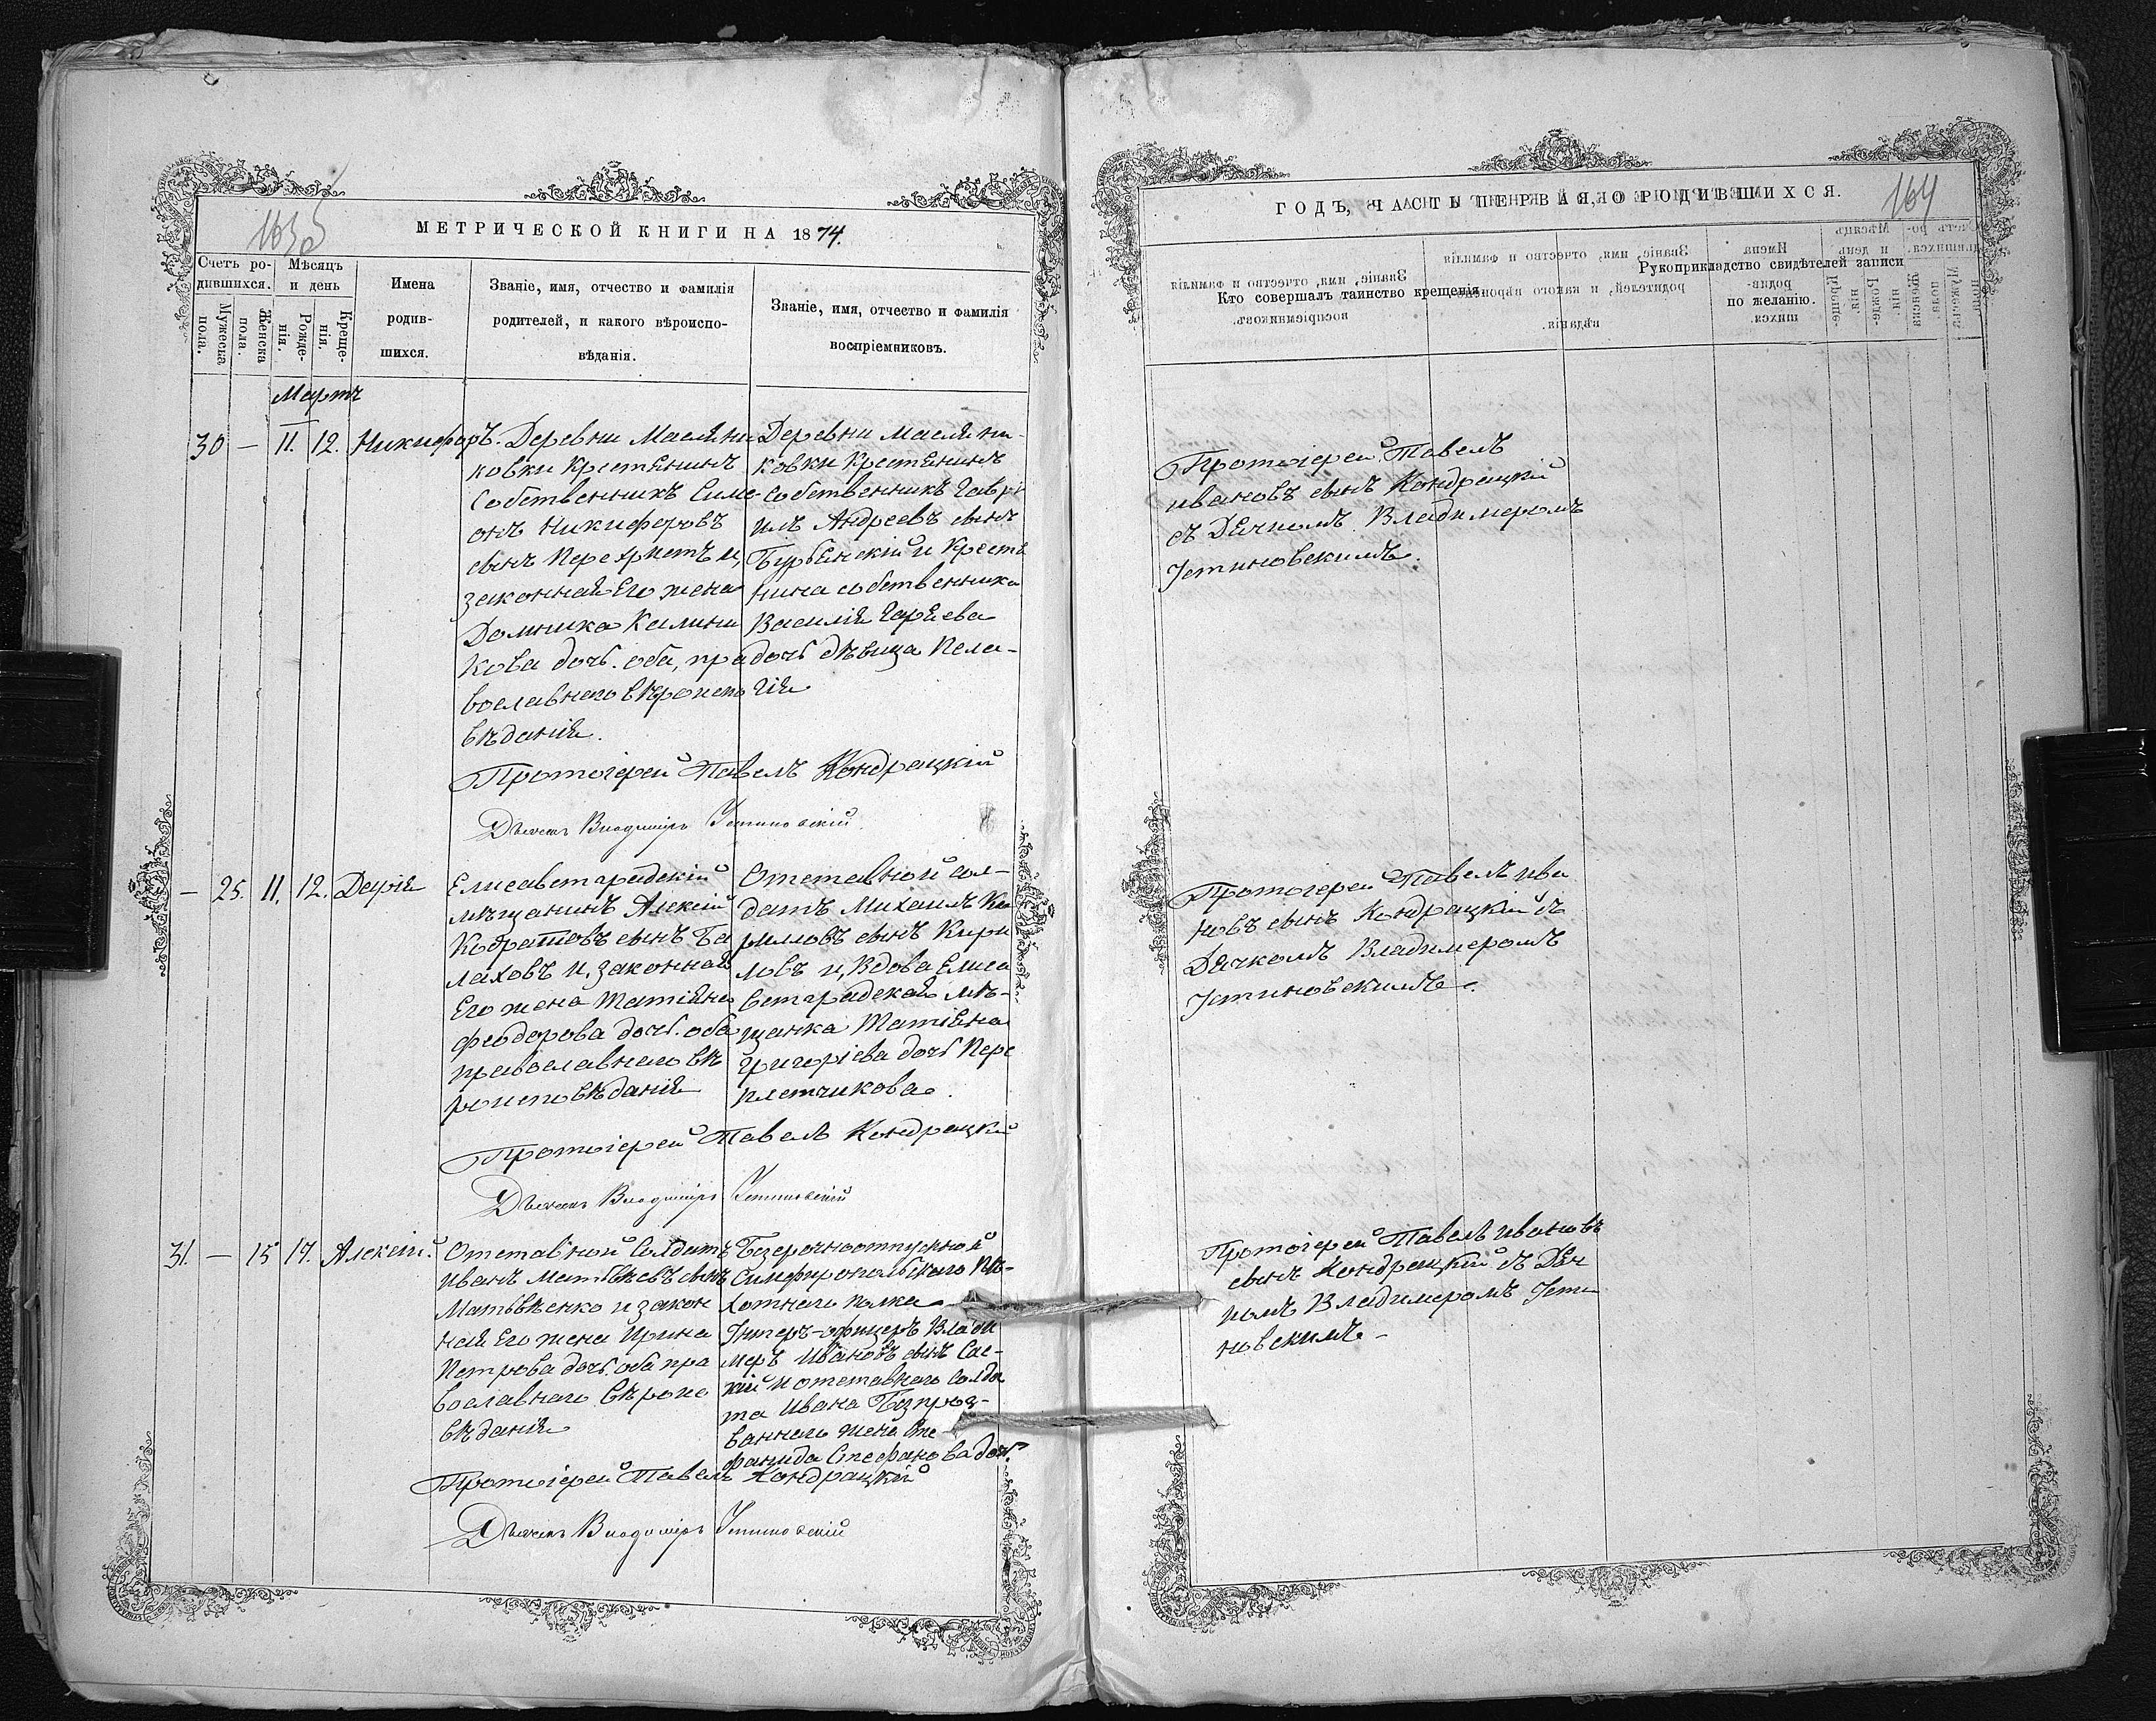 МЕТРИЧЕСКОЙ КНИГИ НА 1874.
Счетъ ро-
дившихся.
Мѣсяцъ
и день
Мужеска
пола.
Женска
пола.
Рожде-
нія.
Креще-
нія.
Имена
родив-
шихся.
Званіе, имя, отчество и фамилія
родителей, и какого вѣроиспо-
вѣданія.
Званіе, имя, отчество и фамилія
воспріемниковъ.
Мартъ
30 — 11. 12. Никифоръ.
Деревни Маслени
ковки Крестьянинъ
Собственникъ Симе-
онъ Никифоровъ
сынъ Перехристъ и,
законная Его жена
Домника Калини
кова дочь. оба, пра
вославнаго вѣроиспо
вѣданія.
Деревни Маслени-
ковки Крестьянинъ
Собственникъ Гаврі
илъ Андреевъ сынъ
и Крестья
нина собственника
Василія
дочь дѣвица Пела-
гія
Протоіерей Павелъ Кондрацкій
Дьячекъ Владиміръ Устиновскій
— 25. 11. 12. Дарія
Елисаветградскій
мѣщанинъ Алексій
Кодратовъ сынъ Ба
лаховъ и, законная
Его жена Татіяна
Феодорова дочь. оба
православнаго вѣ
роисповѣданія
Отставной сол-
датъ Михаилъ Ки
риловъ сынъ Кири
ловъ и, Вдова Елиса
ветградская мѣ-
щанка Татіяна
Григоріева дочь Пере
плетчикова.
Протоіерей Павелъ Кондрацкій
Дьячекъ Владиміръ Устиновскій
31. — 15 17. Алексій.
Отставной Солдатъ
Иванъ Матвѣевъ сынъ
Матвѣенко и закон
ная Его жена Ирина
Петрова дочь. оба пра
вославнаго вѣроис
вѣданія
Безсрочноотпускной
Симферопольскаго Пѣ-
хотнаго полка
Унтеръ-офицеръ Влади
меръ Ивановъ сынъ Сас-
кій и отставнаго солда
та Ивана Безпроз-
ваннаго жена Сте
фанида Стефанова дочь.
Протоіерей Павелъ Кондрацкій
Дьячекъ Владиміръ Устиновскій
ГОДЪ, ЧАСТЬ ПЕРВАЯ, О РОДИВШИХСЯ.
164
Кто совершалъ таинство крещенія.
Рукоприкладство свидѣтелей записи
по желанію.
Протоіерей Павелъ
Ивановъ сынъ Кондрацкій
съ Дячкомъ Владимеромъ
Устиновскимъ.
Протоіерей Павелъ Ива
новъ сынъ Кондрацкій съ
Дячкомъ Владимеромъ
Устиновскимъ.
Протоіерей Павелъ Ивановъ
сынъ Кондрацкій съ Дяч
комъ Владимеромъ Усти
новскимъ.